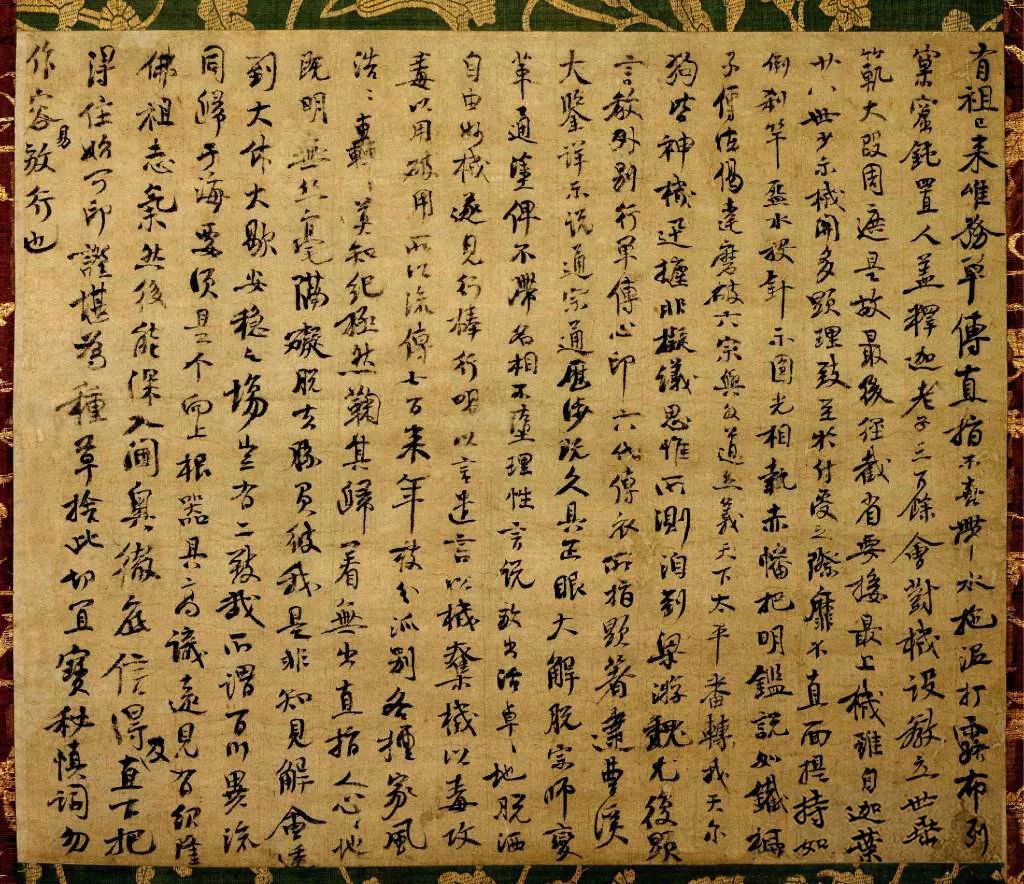 有祖已来唯務單傳直指不喜帶水拖泥打露布列
窠窟鈍置人盖釋迦老子三百餘會對機设教立世垂
範大段周遮是故最後徑截省要接最上機雖自迦葉
廿八世少示機関多顕理致至於付受之際靡不直面提持如
倒刹竿盋水投針示圓光相執赤幡把明鑑説如鐵橛
子傳法偈達磨破六宗與外道立義天下太平番轉我天尔
狗皆神機迅捷非擬議思惟所測洎到梁游魏尤復顕
言教外別行單傳心印六代傳衣所指顕著逮曹溪
大鑒詳示説通宗通歷涉既久具正眼大解脱宗師變
革通塗俾不滯名相不墮理性言説放出活卓〻地脱洒
自由妙機遂見行棒行喝以言遣言以機奪機以毒攻
毒以用破用所以流傳七百来年枝分派別各擅家風
浩〻轟〻莫知紀極然鞠其歸著無出直指人心〻地
既明無丝毫隔礙脱去勝負彼我是非知見解會透
到大休大歇安穏之場豈有二致哉所謂百川異流
同歸于海要须是个向上根器具高識遠見有紹隆
佛祖志氣然後能深入閫奥徹底信得及直下把
得住始可印證堪為種草捨此切宜寶秘慎詞勿
作容易放行也